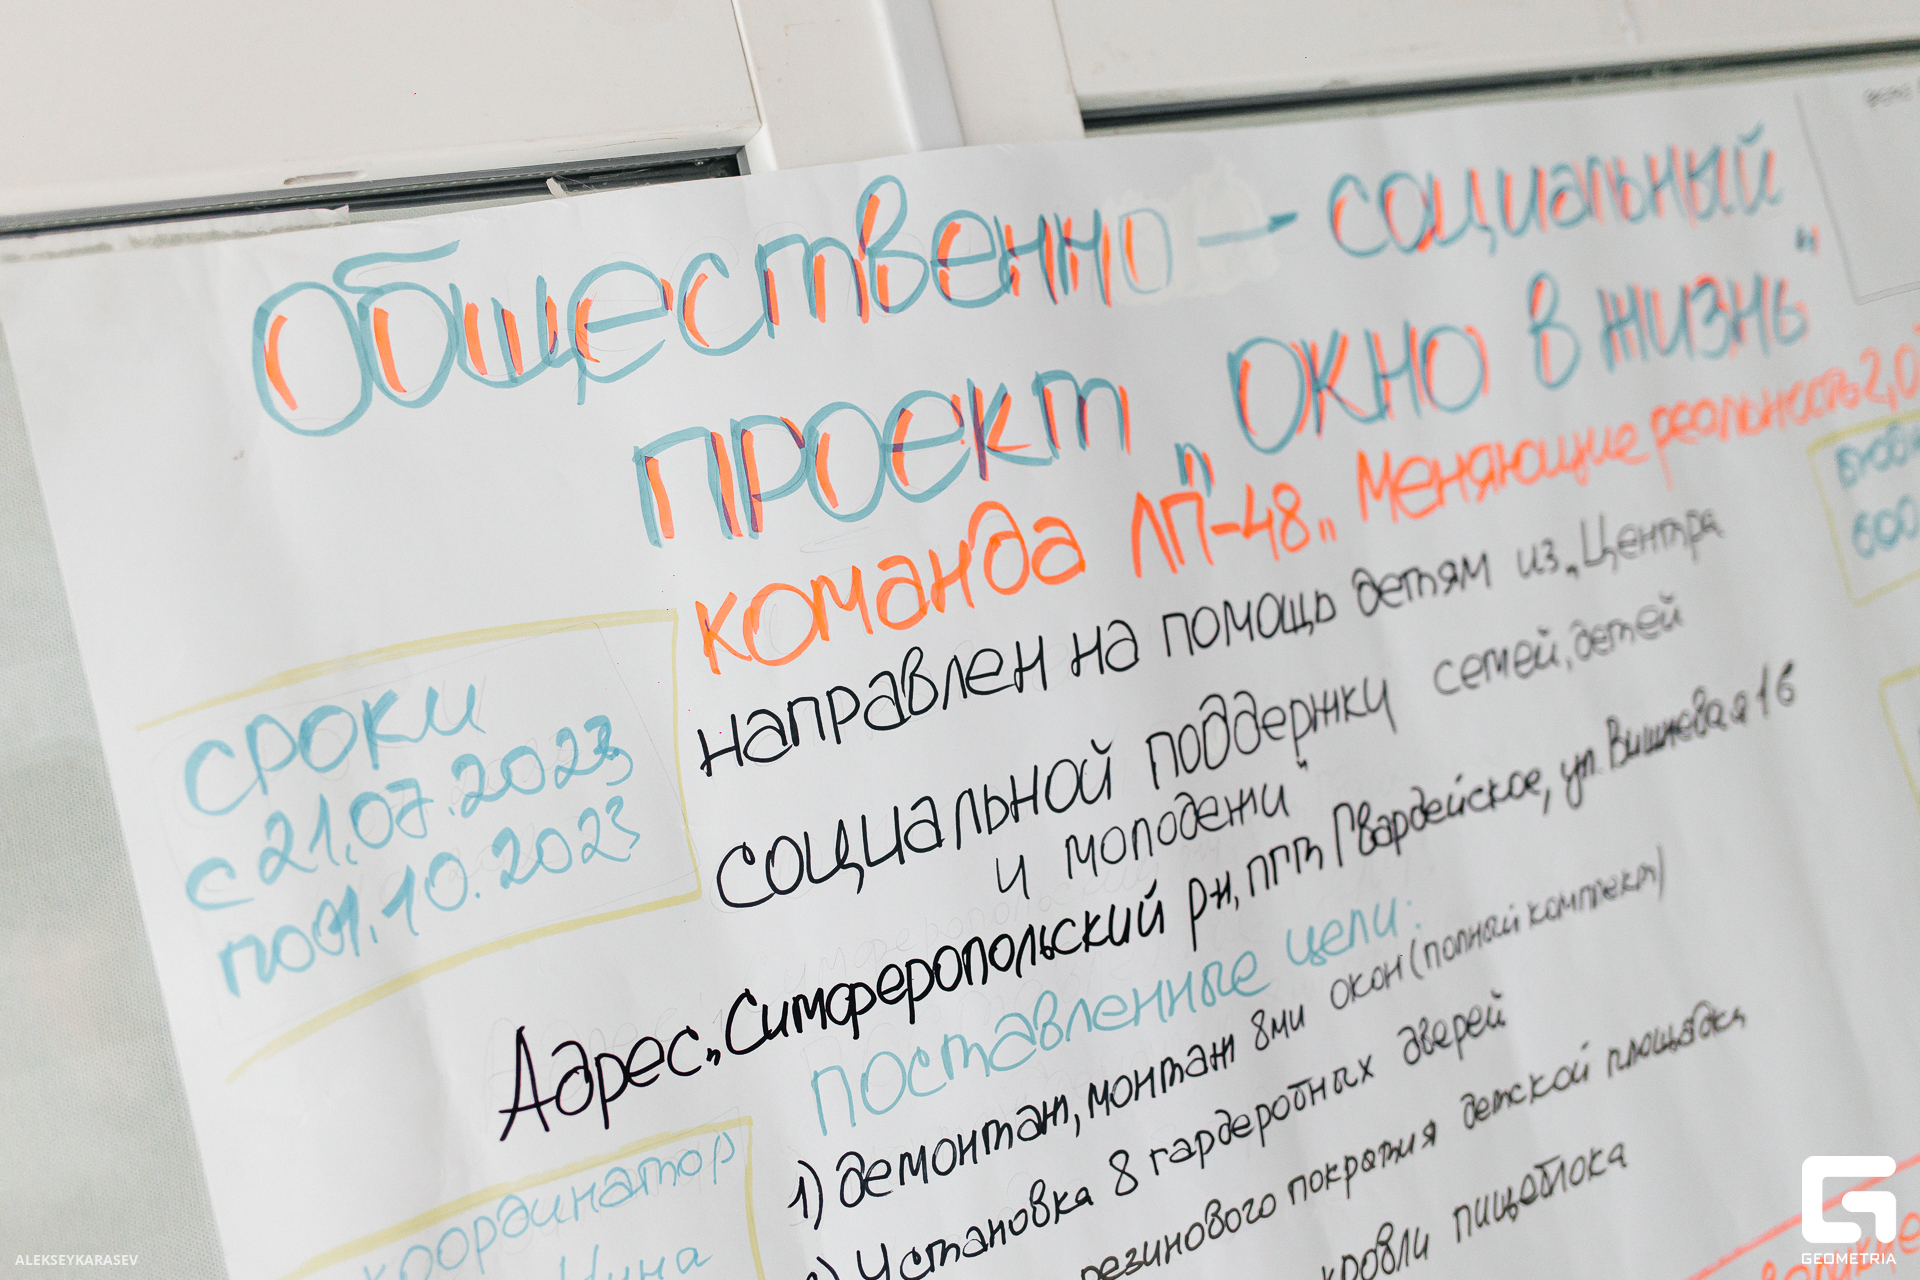 Общественно - социальный
проект „ОКНО в жизнь"
команда ЛП-48 „Меняющие реальность 2,0
направлен на помощь детям из „Центра
социальной поддержки семей, детей
и молодежи"
Адрес „Симферопольский р-н, пгт Гвардейское, ул. Вишневая 16
сроки
с 21.07.2023
по 01.10.2023
поставленные цели:
1) демонтаж, монтаж 8ми окон (полный комплект)
Установка 8 гардеробных дверей
резинового покрытия детской площадки
кровли пищеблока
координатор
Нина
600
ALEKSEYKARASEV
GEOMETRIA